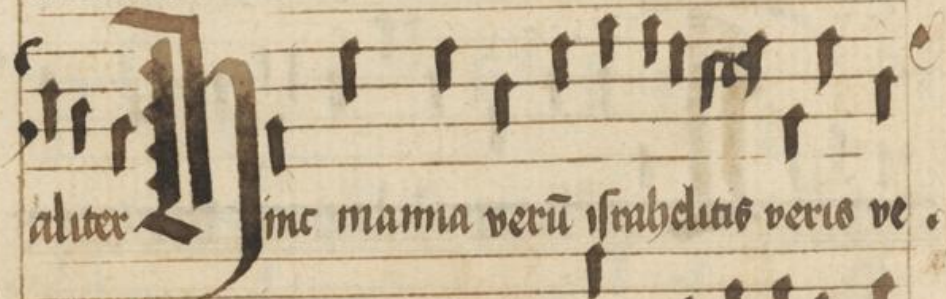 aliter Hinc manna verū israhelitis veris ve.